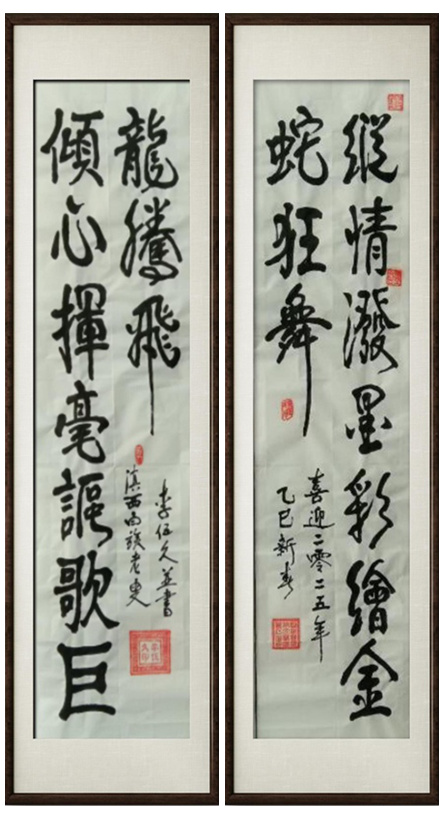 縱情潑墨彩繪金
蛇狂舞
喜迎二零二五年
乙巳新春
傾心揮毫謳歌巨
龍騰飛
滇西族老叟
李伍久並書